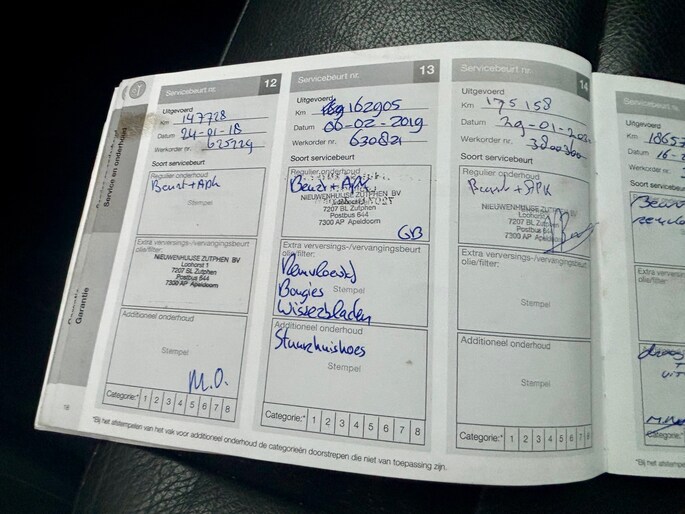 Service en onderhoud
Garantie
Servicebeurt nr. 12
Uitgevoerd
Km 147728
Datum 24-01-18
Werkorder nr. 625229
Soort servicebeurt
Regulier onderhoud
Beurt + Apk
Stempel
Extra verversings-/vervangingsbeurt
olie/filter:
NIEUWENHUIJSE ZUTPHEN BV
Loohorst 1
7207 BL Zutphen
Postbus 644
7300 AP Apeldoorn
Additioneel onderhoud
Stempel
M.O.
Categorie:* 1 2 3 4 5 6 7 8
Servicebeurt nr. 13
Uitgevoerd
Km 162905
Datum 06-02-2019
Werkorder nr. 630821
Soort servicebeurt
Regulier onderhoud
Beurt + APK
NIEUWENHUIJSE ZUTPHEN BV
7207 BL Zutphen
Postbus 644
7300 AP Apeldoorn
GB
Extra verversings-/vervangingsbeurt
olie/filter:
Remvloeistof
Stempel
Bougies
Wisserbladen
Additioneel onderhoud
Stuurhuishoes
Stempel
Categorie:* 1 2 3 4 5 6 7 8
Servicebeurt nr. 14
Uitgevoerd
Km 175158
Datum 29-01-202
Werkorder nr.
Soort servicebeurt
Regulier onderhoud
Beurt + APK
NIEUWENHUIJSE ZUTPHEN
Loohorst
7207 BL Zutphen
Postbus 644
7300 AP Apeldoorn
Extra verversings-/vervangingsbeurt
olie/filter:
Stempel
Additioneel onderhoud
Stempel
Categorie:* 1 2 3 4 5 6 7 8
18
*Bij het afstempelen van het vak voor additioneel onderhoud de categorieën doorstrepen die niet van toepassing zijn.
Servicebeurt
Uitgevoerd
Km 18657
Datum 16-2
Werkorder nr.
Soort servicebeurt
Regulier onderhoud
Beurt
Extra verversings-
olie/filter:
Additioneel
Categorie:*
*Bij het afstempelen